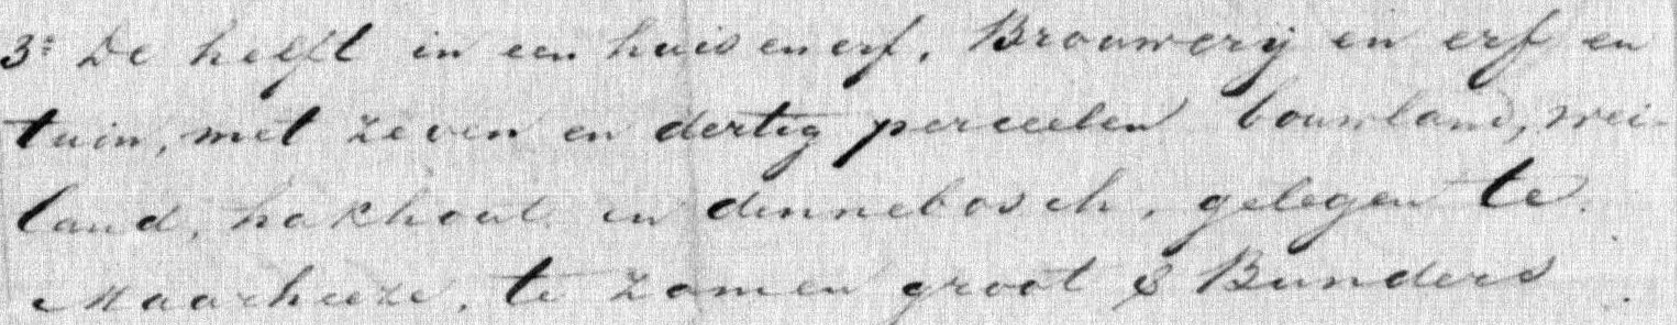 3º De helft in een huis en erf, Brouwerij en erf en
tuin, met zeven en dertig perceelen bouwland, wei-
land, hakhout en dennebosch, gelegen te
Maarheeze, te zamen groot 8 Bunders